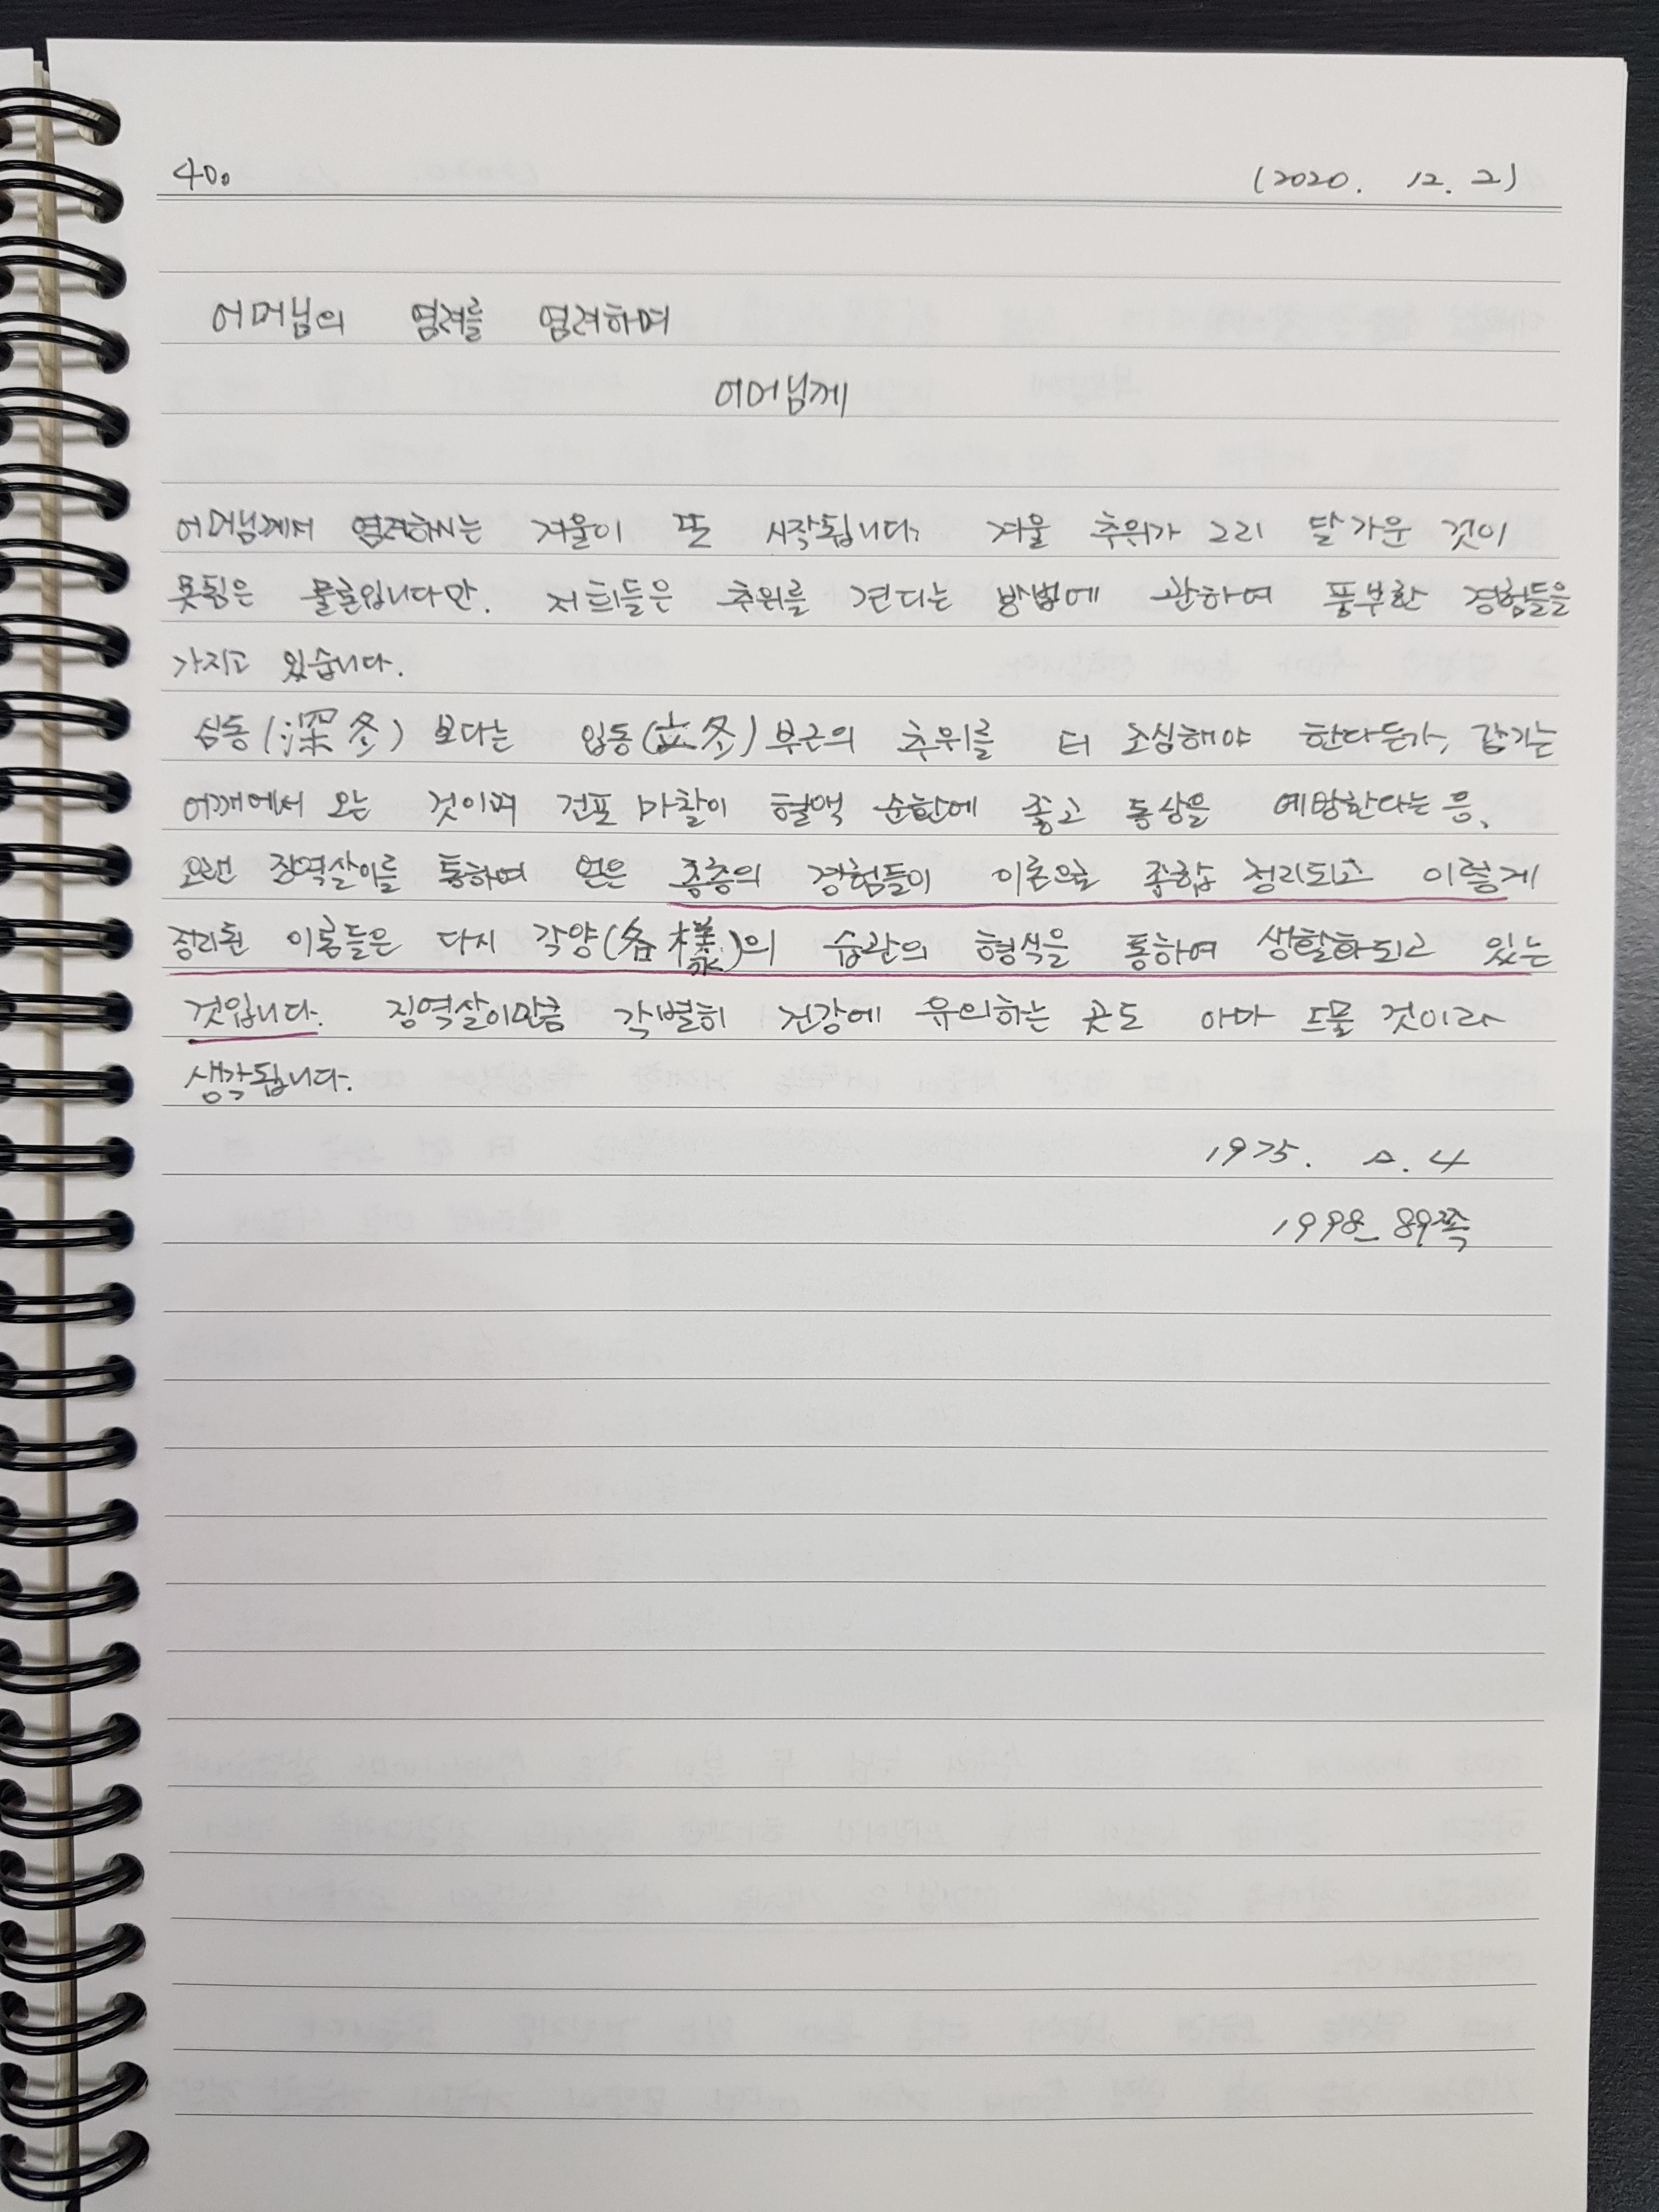 40.
(2020. 12. 2)
어머님의 염려를 염려하며
어머님께
어머님께서 염려하시는 겨울이 또 시작됩니다. 겨울 추위가 그리 달가운 것이
못됨은 물론입니다만. 저희들은 추위를 견디는 방법에 관하여 풍부한 경험들을
가지고 있습니다.
심동(深冬) 보다는 입동(立冬) 부근의 추위를 더 조심해야 한다든가, 감기는
어깨에서 오는 것이며 건포 마찰이 혈액 순환에 좋고 동상을 예방한다는 등,
오랜 징역살이를 통하여 얻은 종종의 경험들이 이론으로 종합 정리되고 이렇게
정리된 이론들은 다시 각양(各樣)의 습관의 형식을 통하여 생활화되고 있는
것입니다. 징역살이만큼 각별히 건강에 유의하는 곳도 아마 드물 것이라
생각됩니다.
1975. 4
1998_ 89쪽